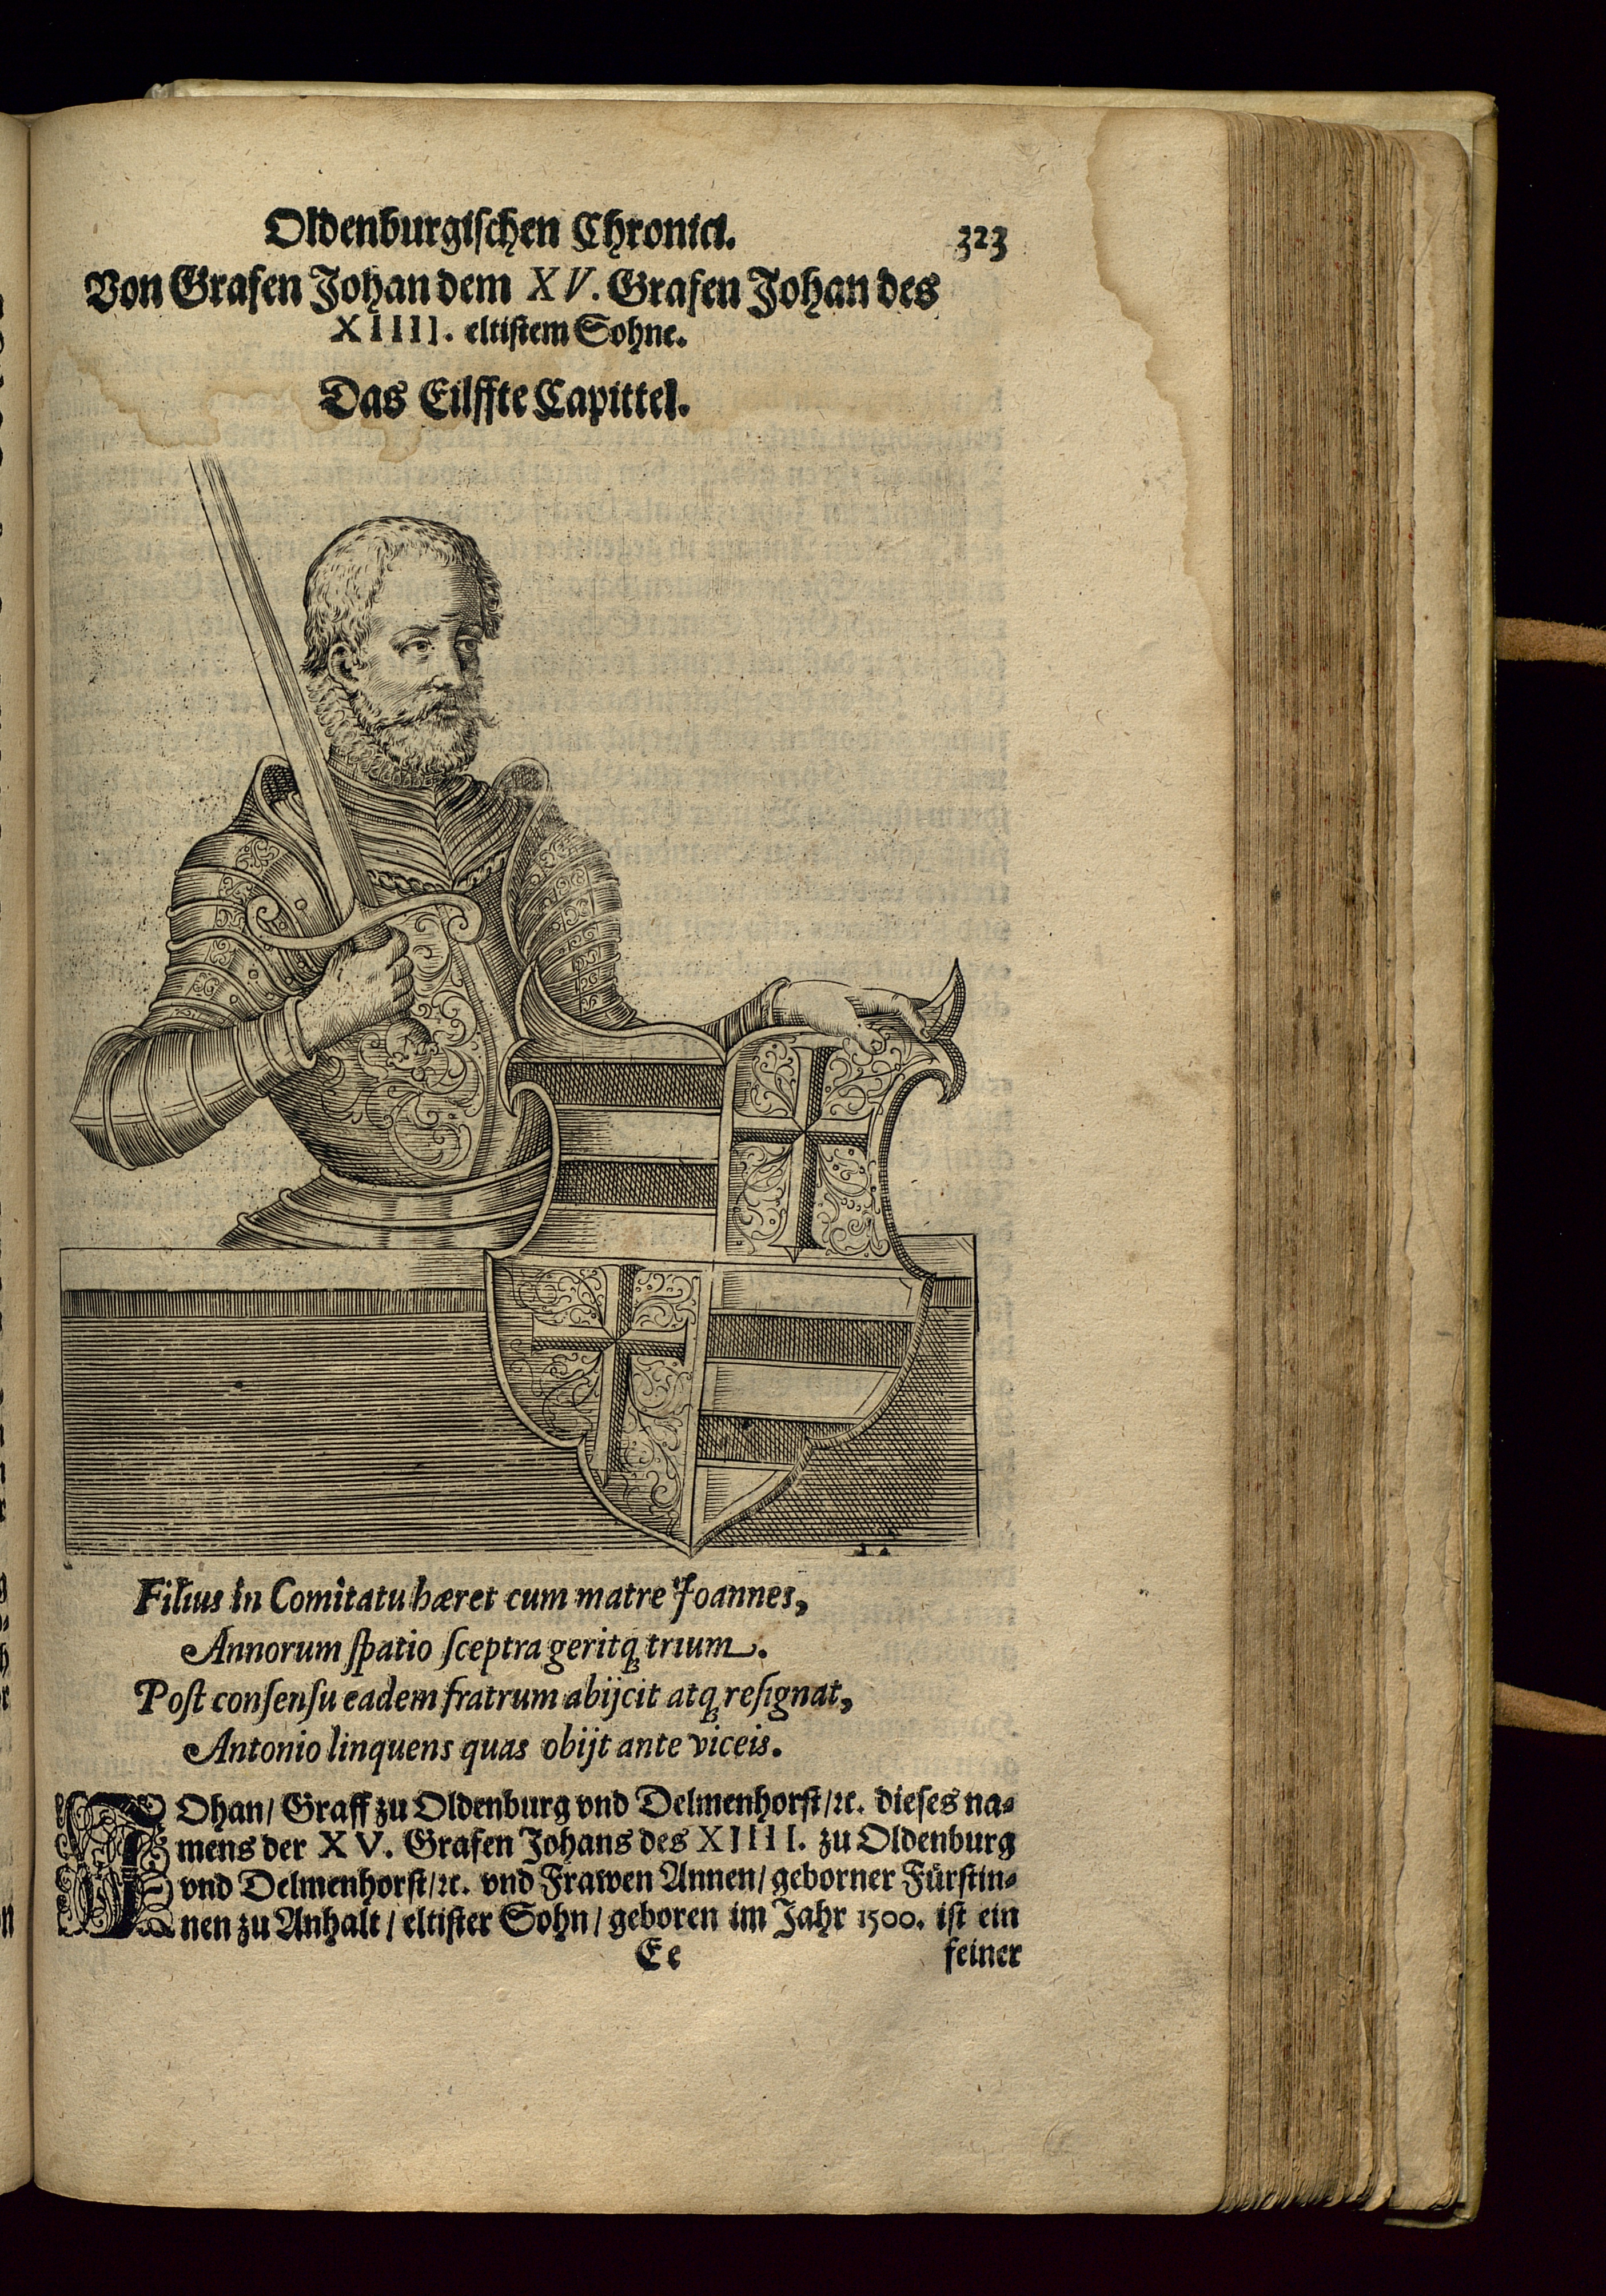 Oldenburgischen Chronici.
323
Von Grafen Johan dem XV. Grafen Johan des
XIIII. eltistem Sohne.
Das Eilffte Capittel.
Filius in Comitatu hæret cum matre Joannes,
Annorum spatio sceptra geritq́ꝫ trium.
Post consensu eadem fratrum abijcit atqꝫ resignat,
Antonio linquens quas obijt ante viceis.
JOhan/ Graff zu Oldenburg vnd Delmenhorst/ ꝛc. dieses na-
mens der XV. Grafen Johans des XIIII. zu Oldenburg
vnd Delmenhorst/ ꝛc. vnd Frawen Annen/ geborner Fürstin-
nen zu Anhalt/ eltister Sohn/ geboren im Jahr 1500. ist ein
Ee
feiner